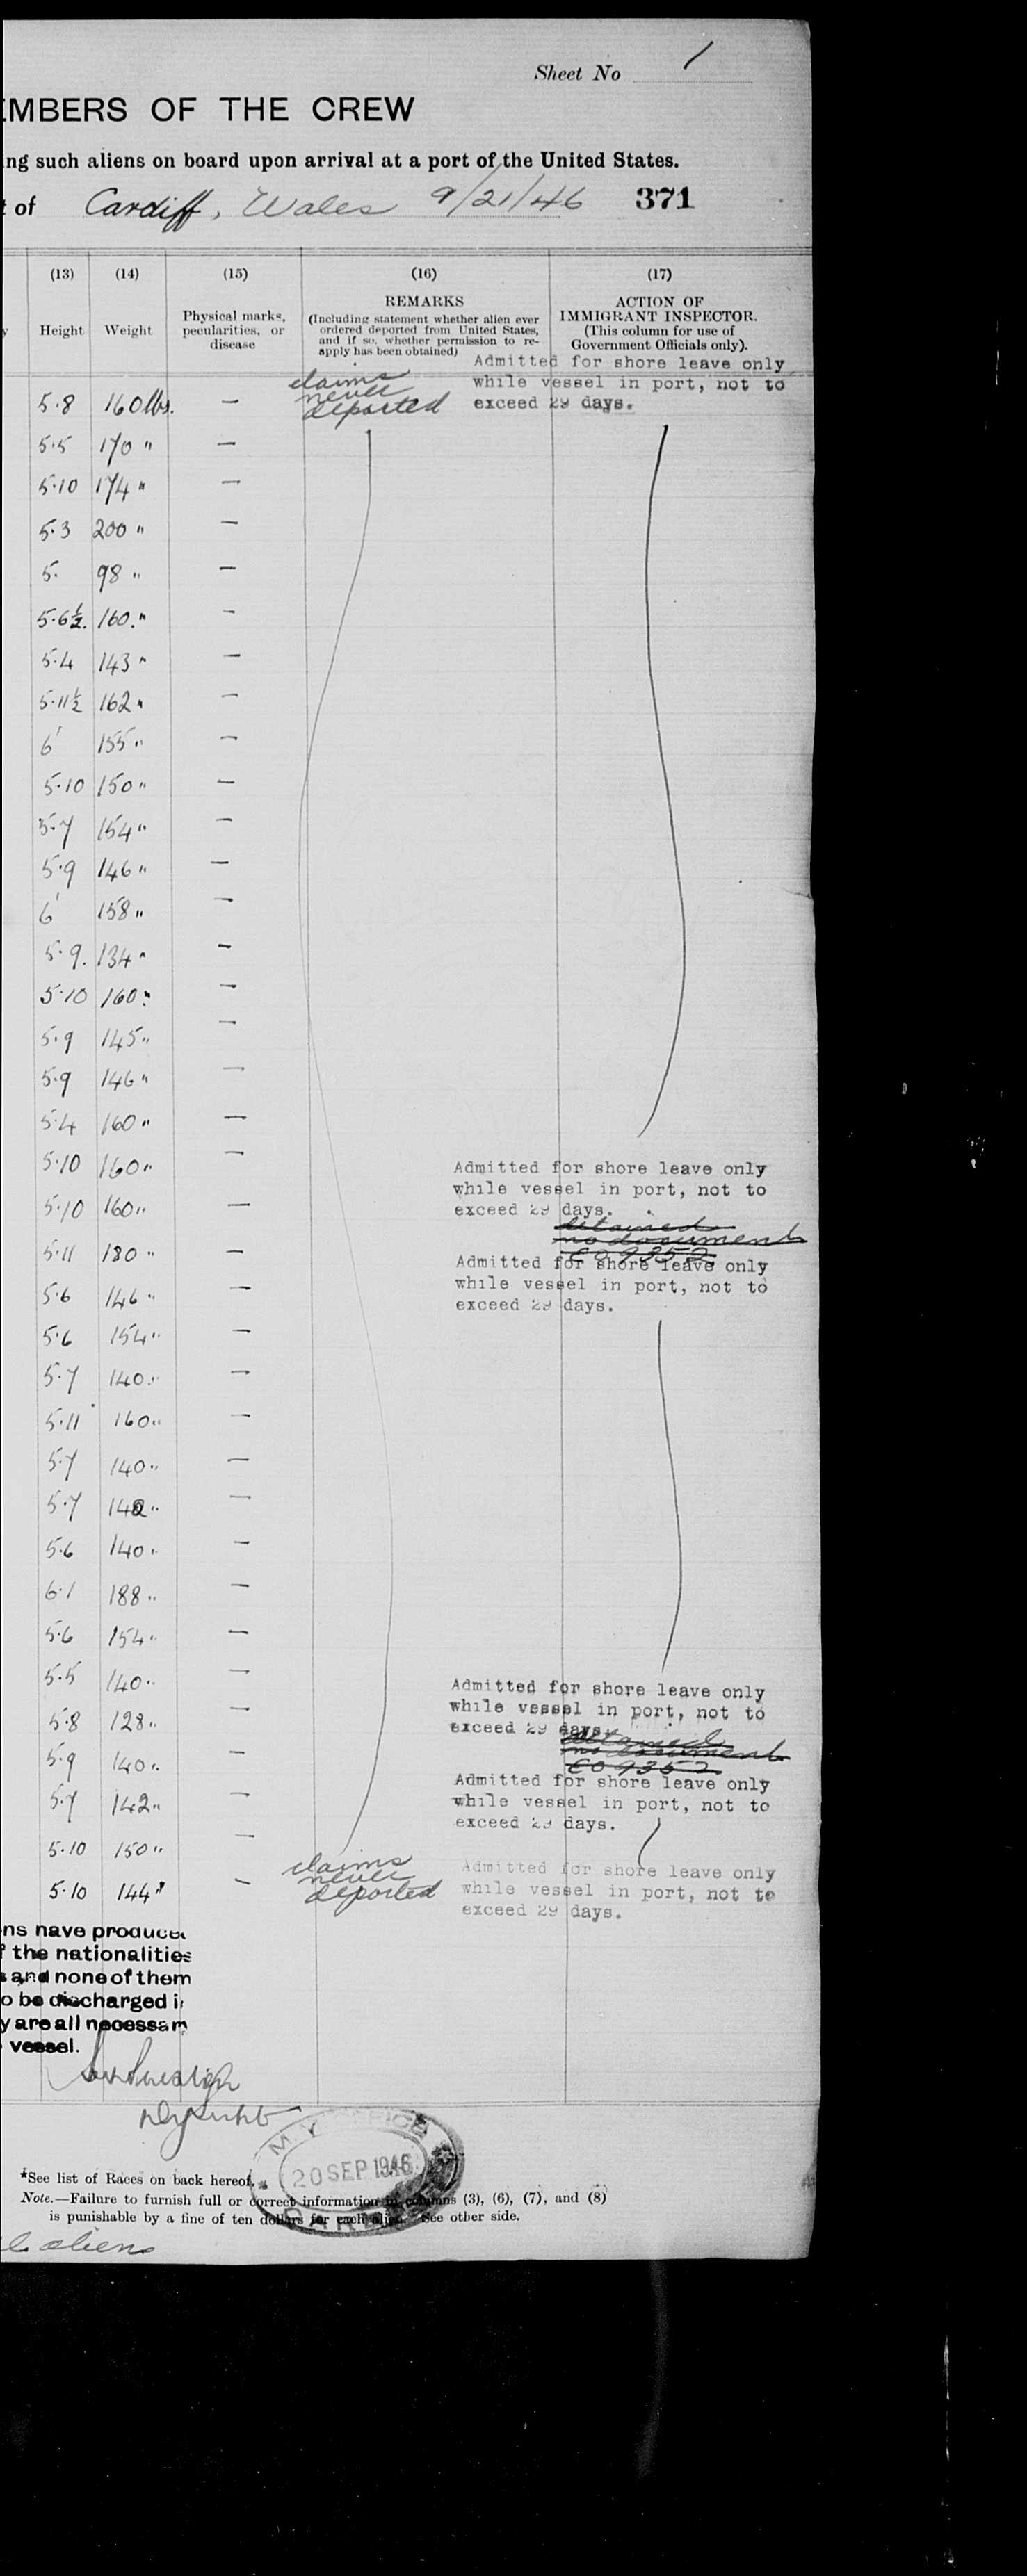 Sheet No 1
EMBERS OF THE CREW
ing such aliens on board upon arrival at a port of the United States.
t of Cardiff, Wales 9/21/46 371
(13) (14) (15) (16) (17)
Height Weight Physical marks, pecularities, or disease
REMARKS
(Including statement whether alien ever
ordered deported from United States,
and if so, whether permission to re-
apply has been obtained)
ACTION OF
IMMIGRANT INSPECTOR.
(This column for use of
Government Officials only).
Admitted for shore leave only
while vessel in port, not to
exceed 29 days.
claims
never
deported
5·8 160 lbs. —
5·5 170 " —
5·10 174 " —
5·3 200 " —
5· 98 " —
5·6½. 160." —
5·4 143 " —
5·11½ 162 " —
6' 155 " —
5·10 150 " —
5·7 154 " —
5·9 146 " —
6' 158 " —
5·9. 134 " —
5·10 160 " —
5·9 145 " —
5·9 146 " —
5·4 160 " —
5·10 160 " —
Admitted for shore leave only
while vessel in port, not to
exceed 29 days.
5·10 160 " —
detained
no document
5·11 180 " —
Admitted for shore leave only
while vessel in port, not to
exceed 29 days.
5·6 146 " —
5·6 154 " —
5·7 140 " —
5·11 160 " —
5·7 140 " —
5·7 " —
5·6 140 " —
6·1 188 " —
5·6 154 " —
5·5 140 " —
Admitted for shore leave only
while vessel in port, not to
exceed 29 days.
5·8 128 " —
detained
no document
5·9 140 " —
Admitted for shore leave only
while vessel in port, not to
exceed 29 days.
5·7 142 " —
5·10 150 " —
claims
never
deported
Admitted for shore leave only
while vessel in port, not to
exceed 29 days.
5·10 144 " —
ns have produce
f the nationalities
s and none of them
o be discharged i
y are all necessar
vessel.
20 SEP 1946
*See list of Races on back hereof.
Note.—Failure to furnish full or correct information in columns (3), (6), (7), and (8)
is punishable by a fine of ten dollars for each alien. See other side.
aliens